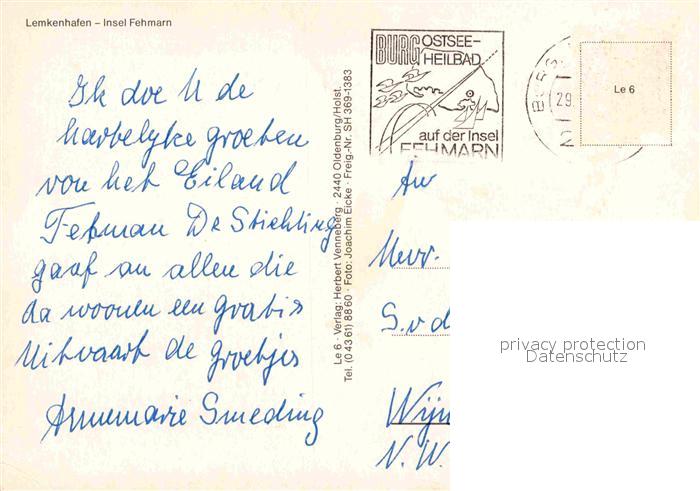 Lemkenhafen – Insel Fehmarn
Ik doe U de
hartelyke groeten
von het Eiland
Fehman De Stichting
gaaf an allen die
da woonen een gratis
Uitvaart de groetjes
Annemarie Smeding
Le 6 · Verlag: Herbert Venneberg · 2440 Oldenburg/Holst.
Tel. (0 43 61) 88 60 · Foto: Joachim Eicke · Freig.-Nr. SH 369-1383
BURG OSTSEE-
HEILBAD
auf der Insel
FEHMARN
29.
2
Le 6
An
Mevr.
S.v d
Wijn
N.W.
privacy protection
Datenschutz